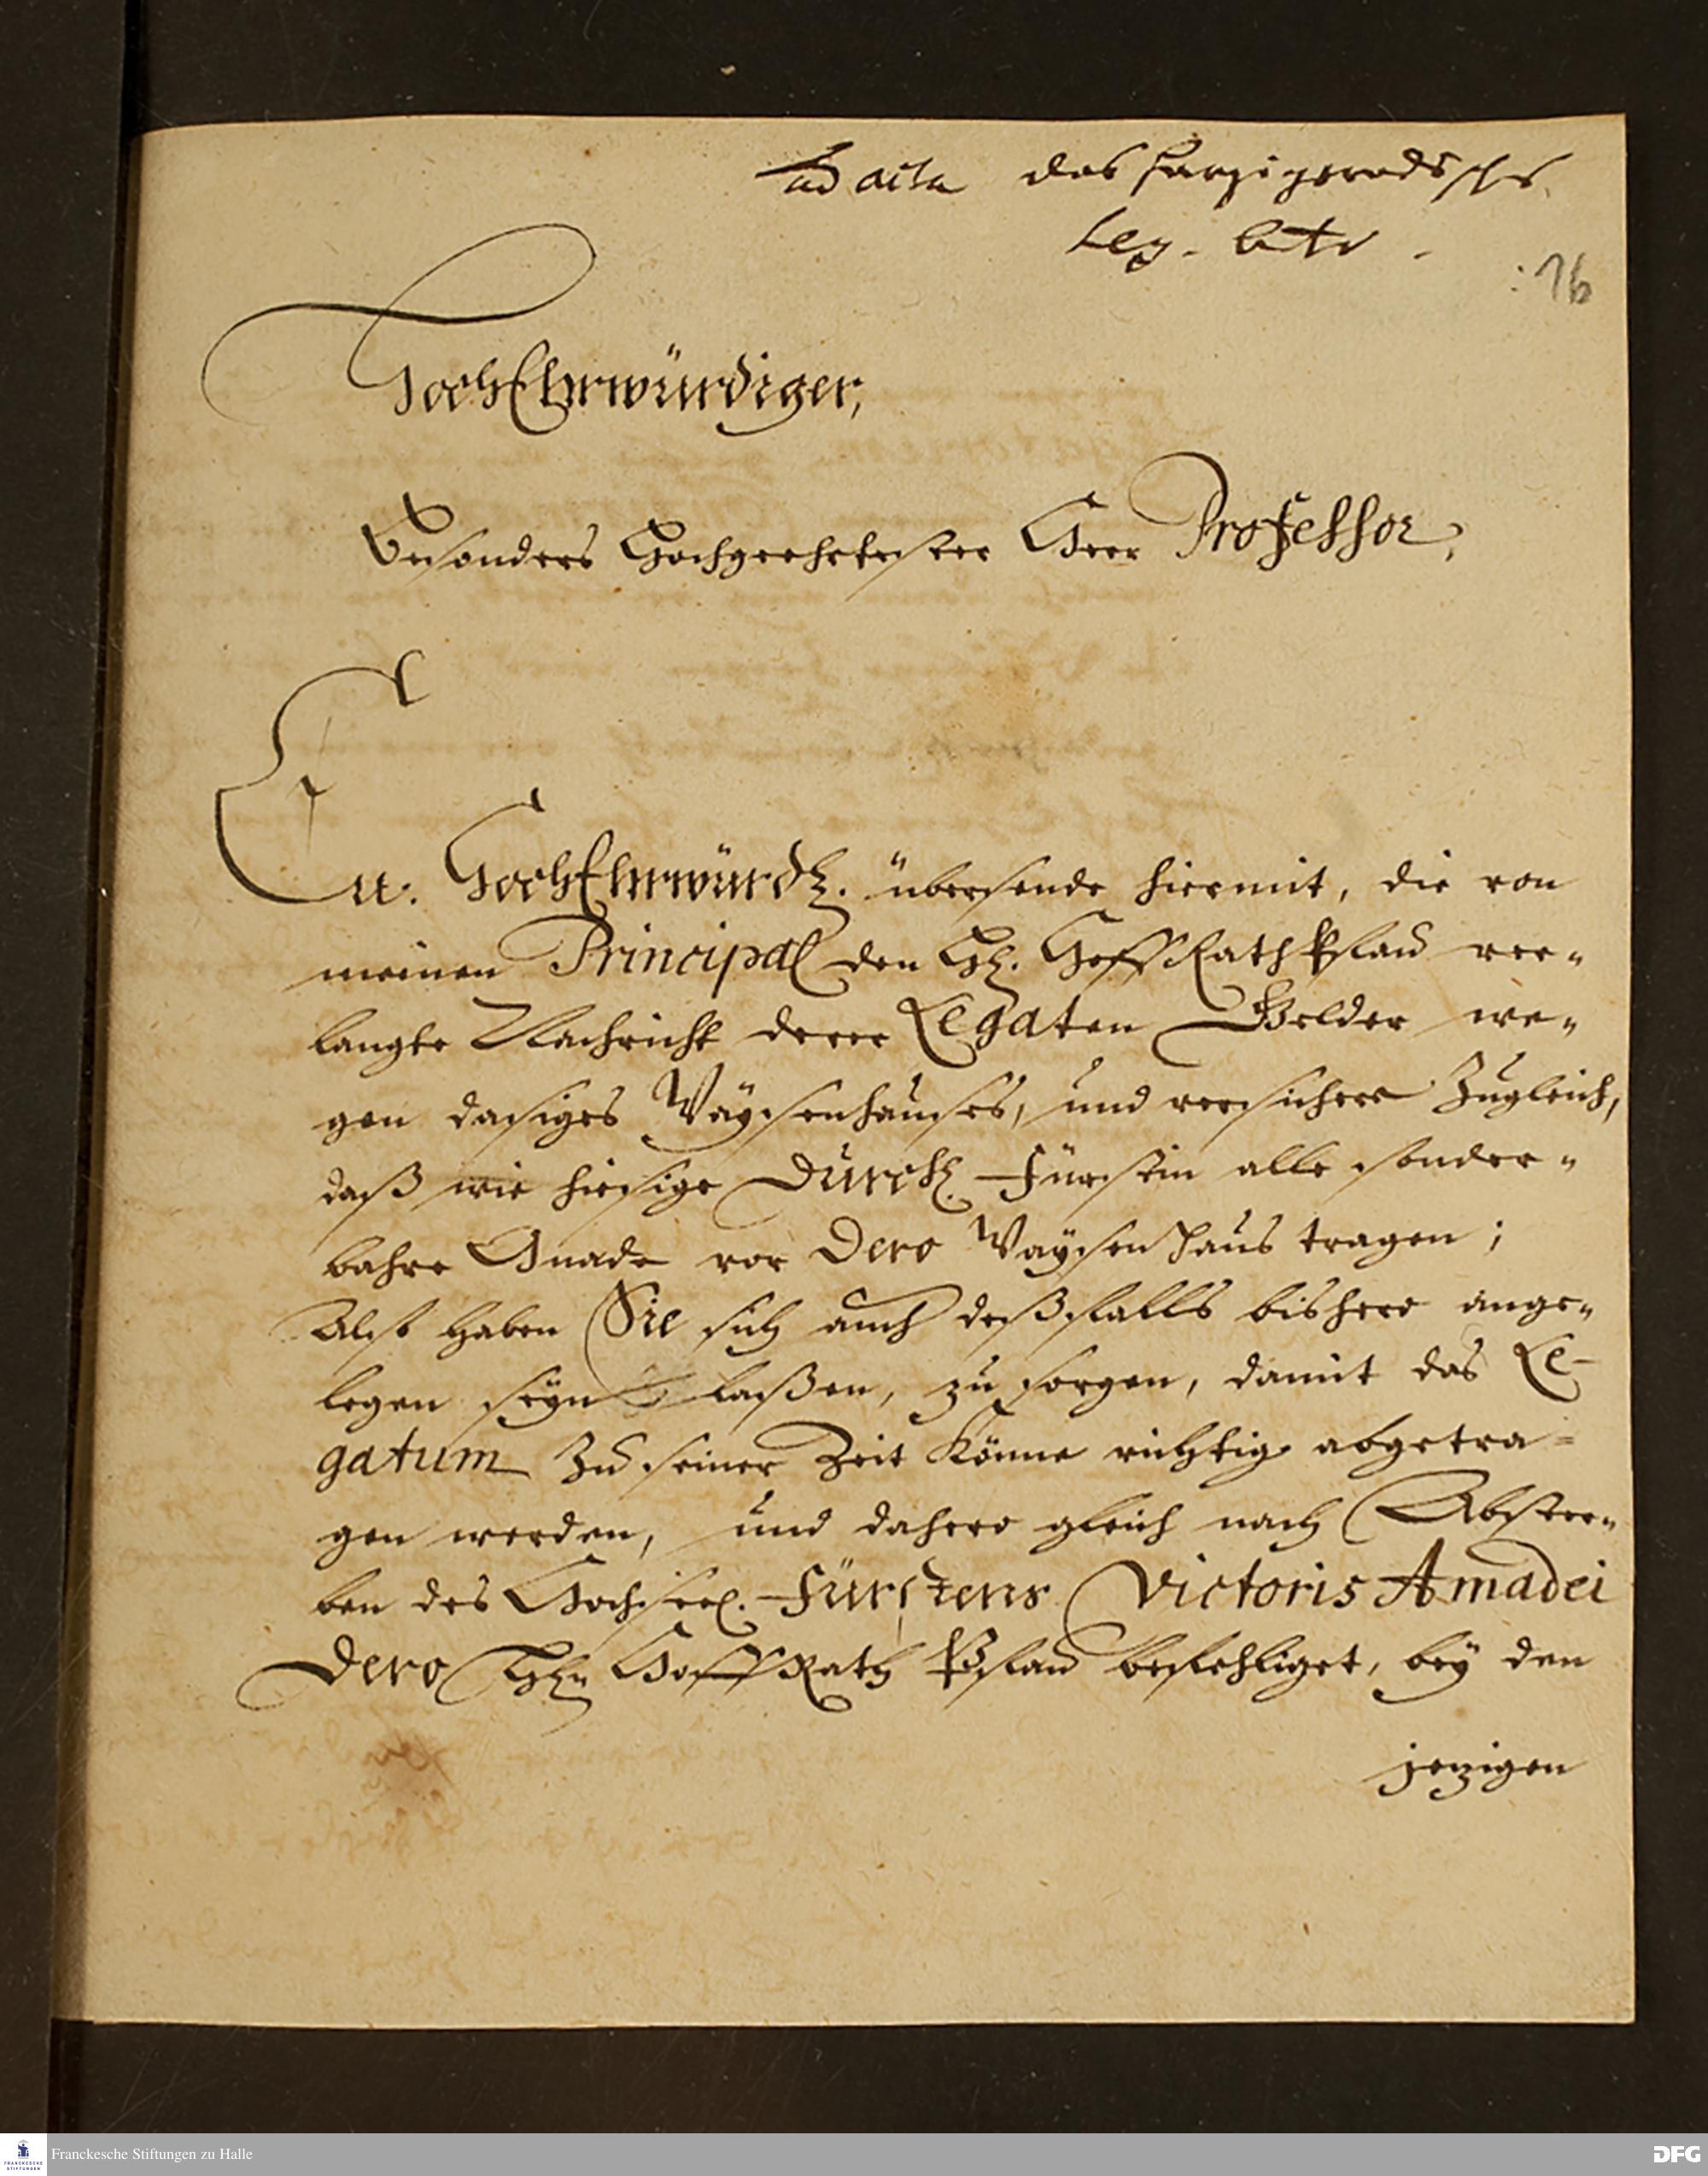 ad acta das harzigerodische
Leg. betr.
76
HochEhrwürdiger,
Besonders Hochgeehrtester Herr Professor,
Eu. HochEhrwürdl. übersende hiermit, die von
meinen Principal den Hl. HoffRath Pfau ver-
langte Nachricht derer Legaten Gelder we-
gen dasiges Wäysenhauses, und versichere Zugleich,
daß wie hiesige Durchl. Fürstin alle sonder-
bahre Gnade vor Dero Waysenhaus tragen;
Alß haben Sie sich auch deßfalls bishero ange-
legen seyn laßen, zu sorgen, damit das Le-
gatum Zu seiner Zeit könne richtig abgetra-
gen werden, und dahero gleich nach Abster-
ben des Hochseel. Fürstens Victoris Amadei
Dero HEn HoffRath Pfau befehliget, bey den
jenigen
Franckesche Stiftungen zu Halle
FRANCKESCHE STIFTUNGEN
DFG